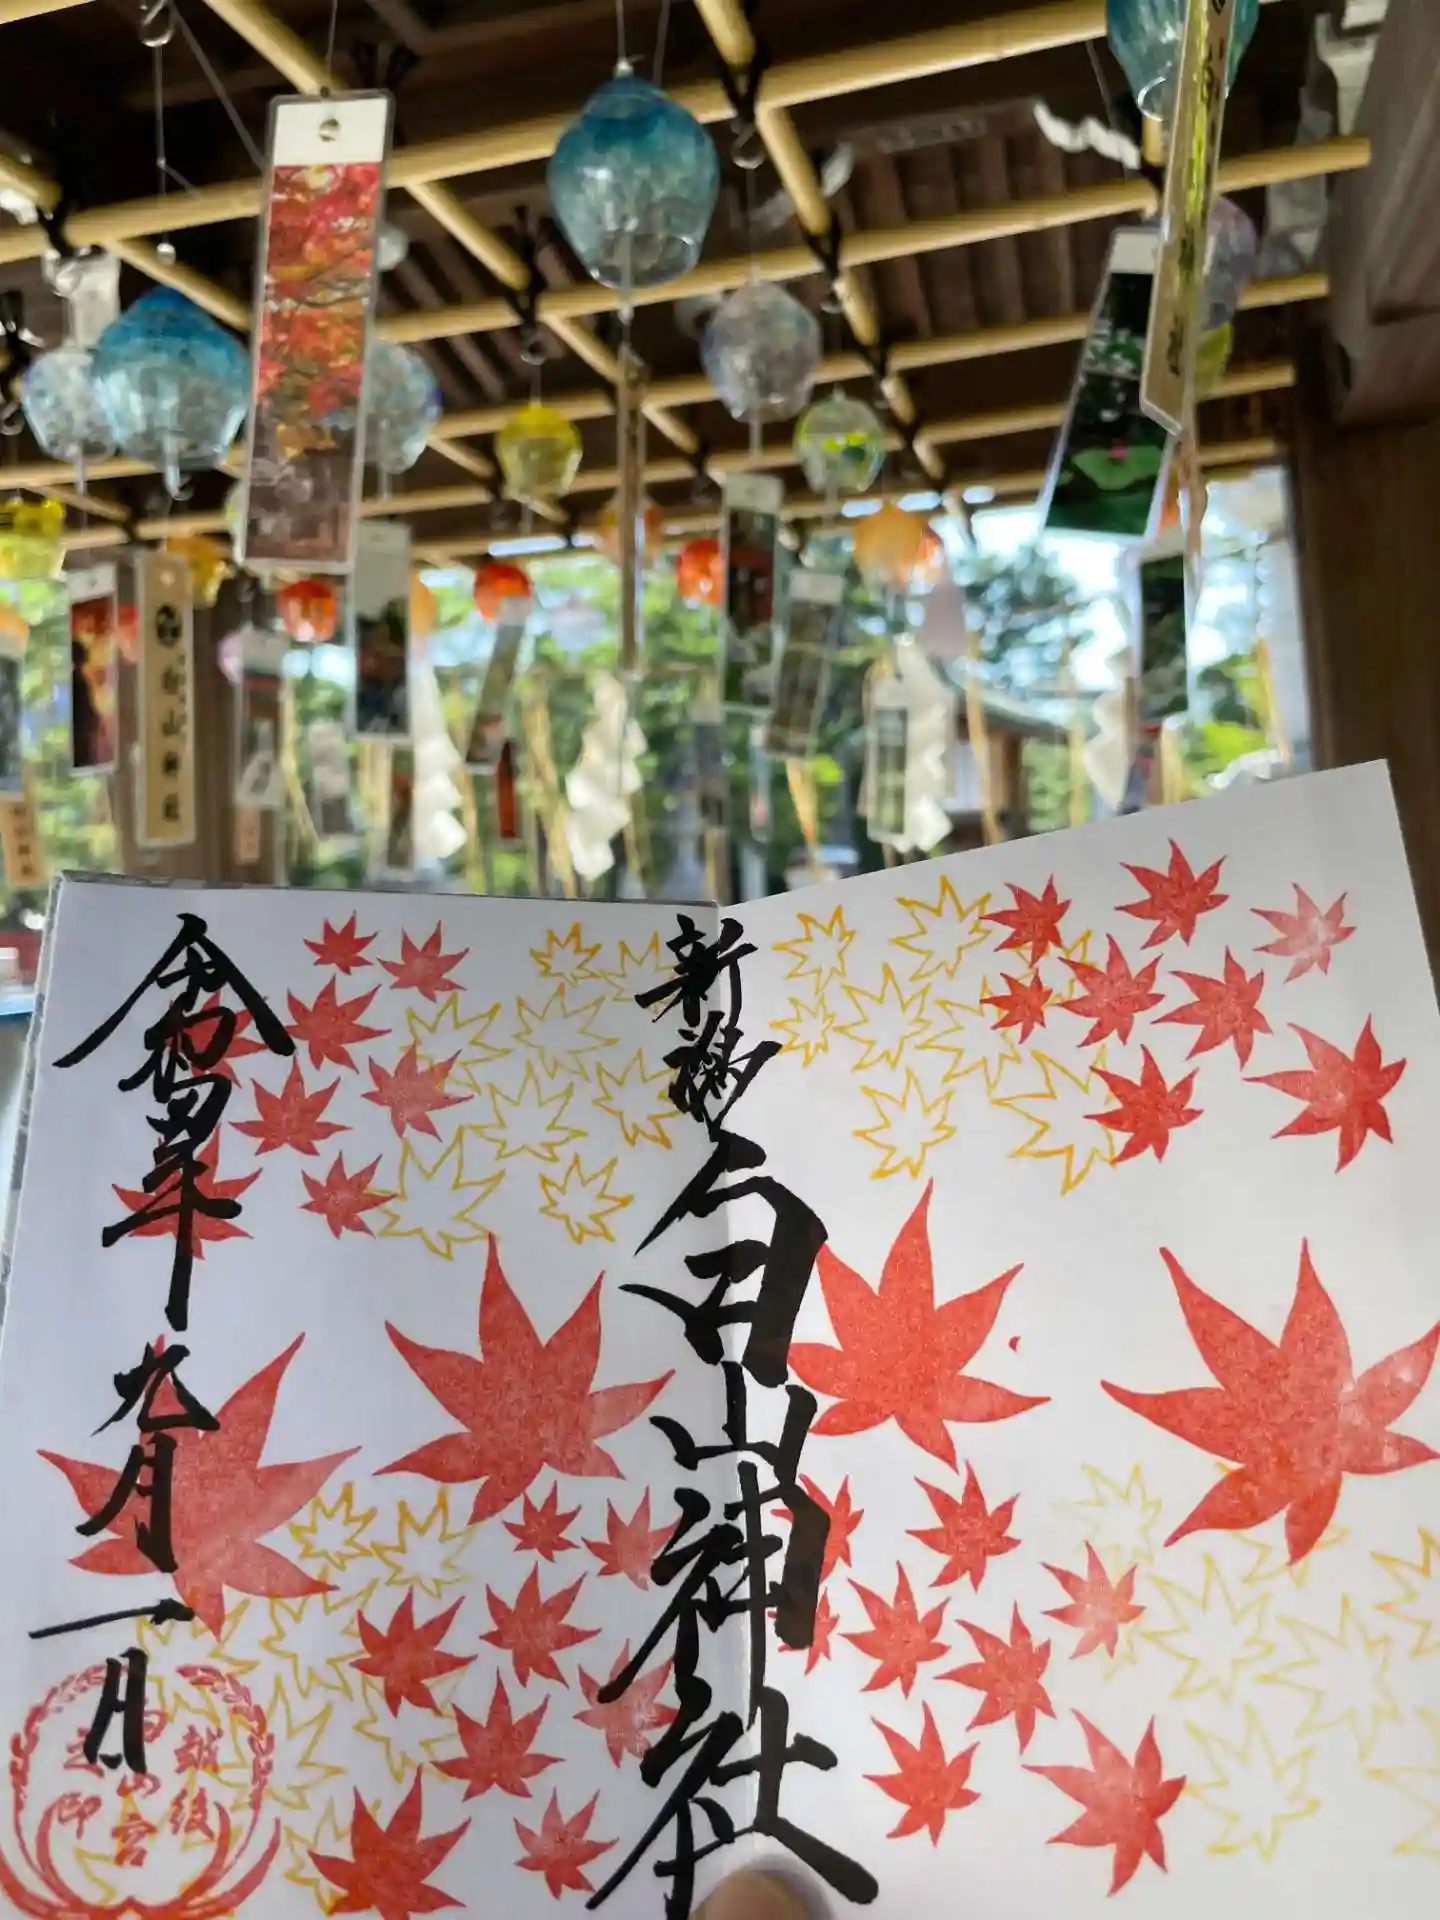 白山神社
新潟白山神社
令和四年九月一日
越後
白山宮
之印